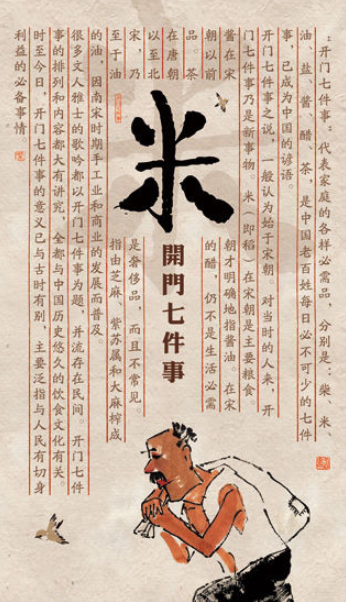 ：开门七件事：代表家庭的各样必需品，分别是：柴、米、
油、盐、酱、醋、茶，是中国老百姓每日必不可少的七件
事，已成为中国的谚语。
开门七件事之说，一般认为始于宋朝。对当时的人来，开
门七件事乃是新事物。米（即稻）在宋朝是主要粮食。
酱在宋朝才明确地指酱油。在宋
朝以前的醋，仍不是生活必需
品。茶
在唐朝
以至北
宋，乃是奢侈品，而且不常见。
至于油指由芝麻、紫苏属和大麻榨成
的油，因南宋时期手工业和商业的发展而普及。
很多文人雅士的歌吟都以开门七件事为题，并流存在民间。开门七件
事的排列和内容都大有讲究，全都与中国历史悠久的饮食文化有关。
时至今日，开门七件事的意义已与古时有别，主要泛指与人民有切身
利益的必备事情
米
開門七件事